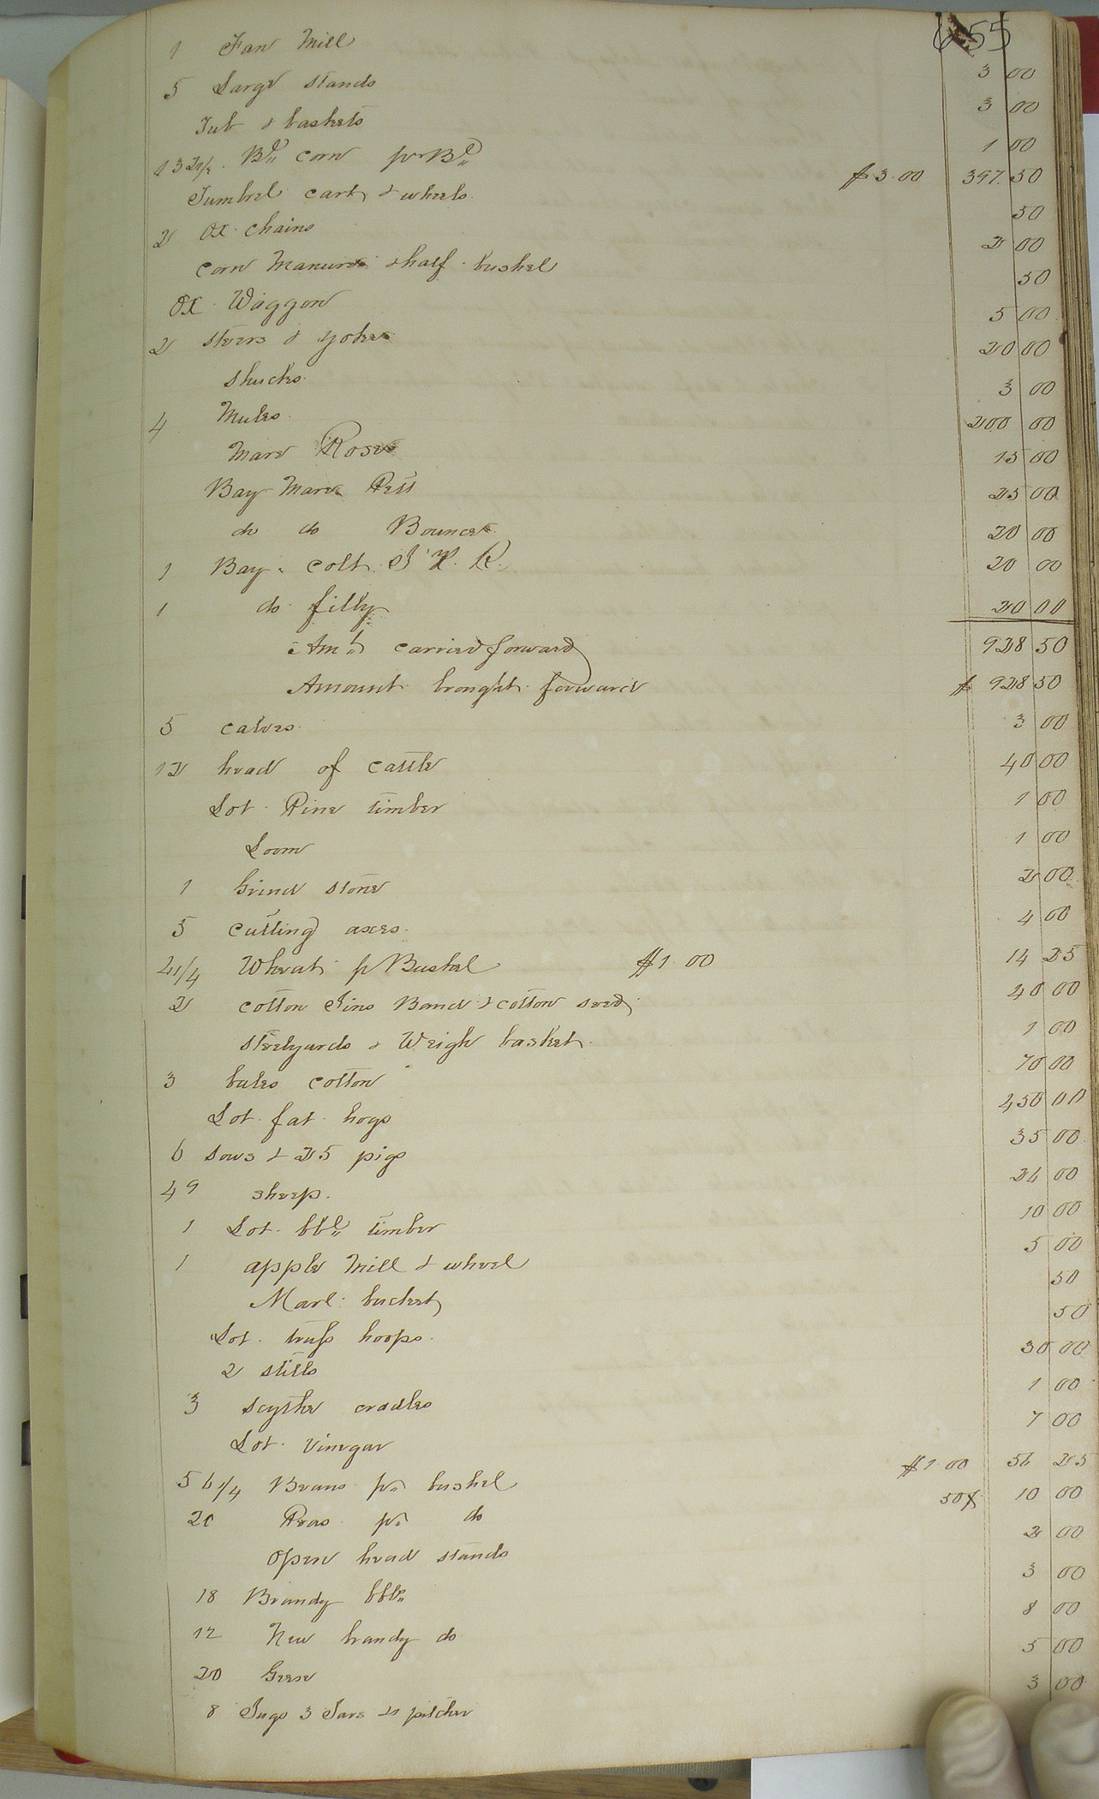 655
1 Fan Mill 3 00
5 Large stands 3 00
Tub & baskets 1 00
132 1/2 Bls corn pr Bl $3.00 397.50
Tumbrel cart & wheels 50
2 Ox chains 2 00
corn & half bushel 50
Ox Waggon 5 00
2 steers & yokes 20 00
shucks 3 00
4 Mules 200 00
Mare Rose 15 00
Bay Mare 25 00
do do Bounce 20 00
1 Bay colt 20 00
1 do filly 20 00
Amt carried forward 928 50
Amount brought forward $ 928 50
5 calves 3 00
12 head of cattle 40 00
Lot Pine timber 1 00
Loom 1 00
1 Grind stone 2 00
5 cutting axes 4 00
Wheat pr Bushel $1 00 14 25
2 cotton Gins Band & cotton seed 40 00
Steelyards & Weigh basket 1 00
3 bales cotton 70 00
Lot fat hogs 450 00
6 sows & 25 pigs 35 00
49 sheep 24 00
1 Lot bbl timber 10 00
1 apple Mill & wheel 5 00
Marl bucket 50
Lot truss hoops 50
2 stills 30 00
3 scythe cradles 1 00
Lot vinegar 7 00
56 1/4 Beans pr bushel $1 00 56 25
20 Peas pr do 50 10 00
Open head stands 2 00
18 Brandy bbls 3 00
12 New brandy do 8 00
20 Geese 5 00
8 Jugs 3 Jars & pitcher 3 00